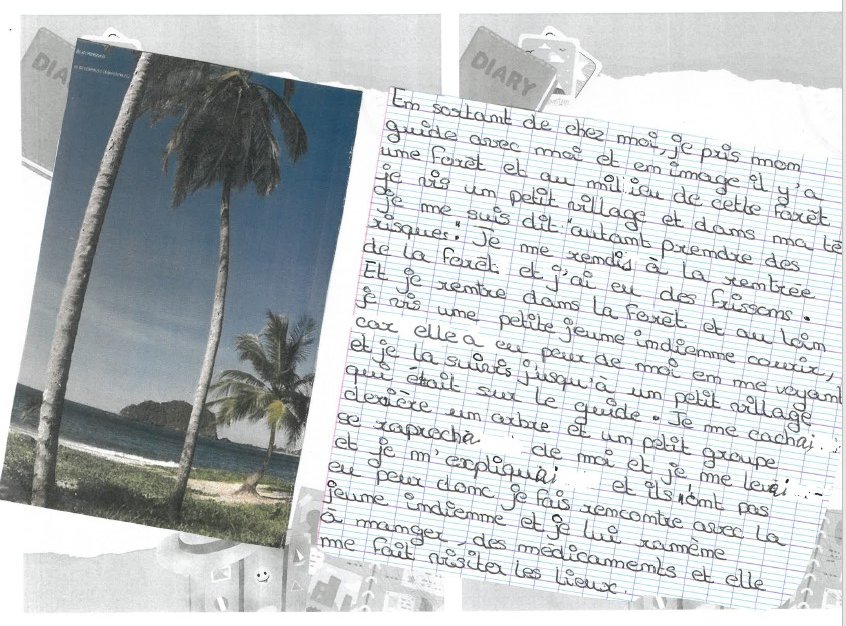 DIA
DIARY
En sortant de chez moi, je pris mon
guide avec moi et en image il y'a
une forêt et au milieu de cette forêt
je vis un petit village et dans ma tê
je me suis dit "autant prendre des
risques." Je me rendis à la rentrée
de la forêt et j'ai eu des frissons.
Et je rentre dans la forêt et au loin
je vis une petite jeune indienne courir,
car elle a eu peur de moi en me voyant
et je la suivis jusqu'à un petit village
qui était sur le guide. Je me cachai
derière un arbre et un petit groupe
se raprocha de moi et je me levai
et je m'expliquai et ils n'ont pas
eu peur donc je fais rencontre avec la
jeune indienne et je lui ramène
à manger, des médicaments et elle
me fait visiter les lieux.